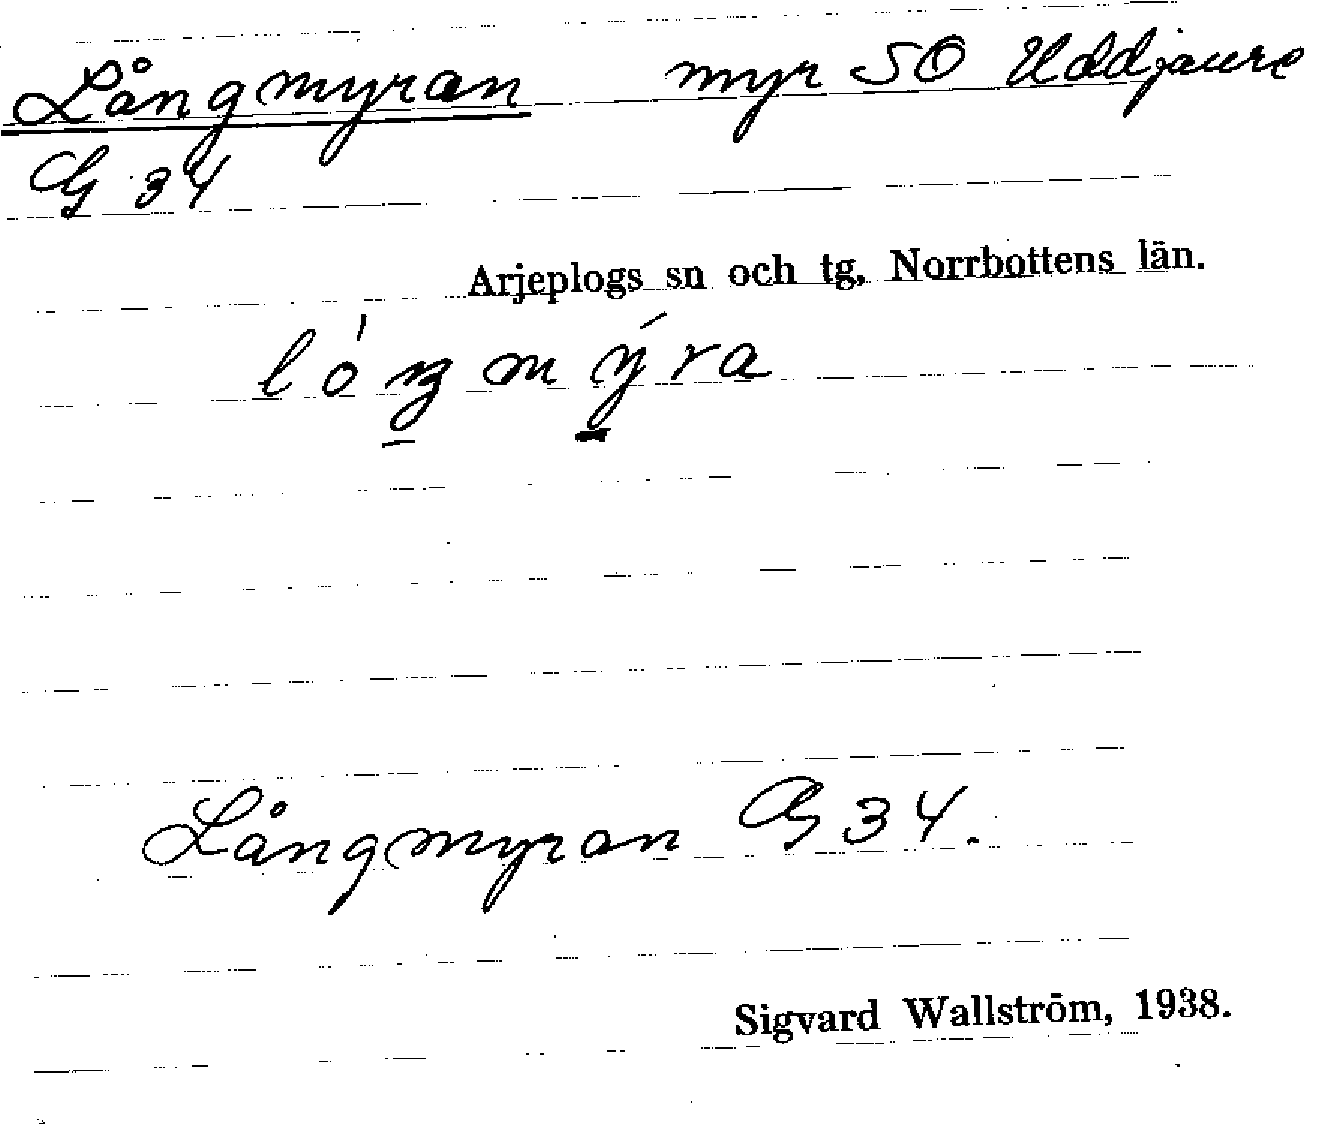 Långmyran myr SO Uddjaure
G 34
Arjeplogs sn och tg, Norrbottens län.
lóŋmýra
Långmyran G 34.
Sigvard Wallström, 1938.